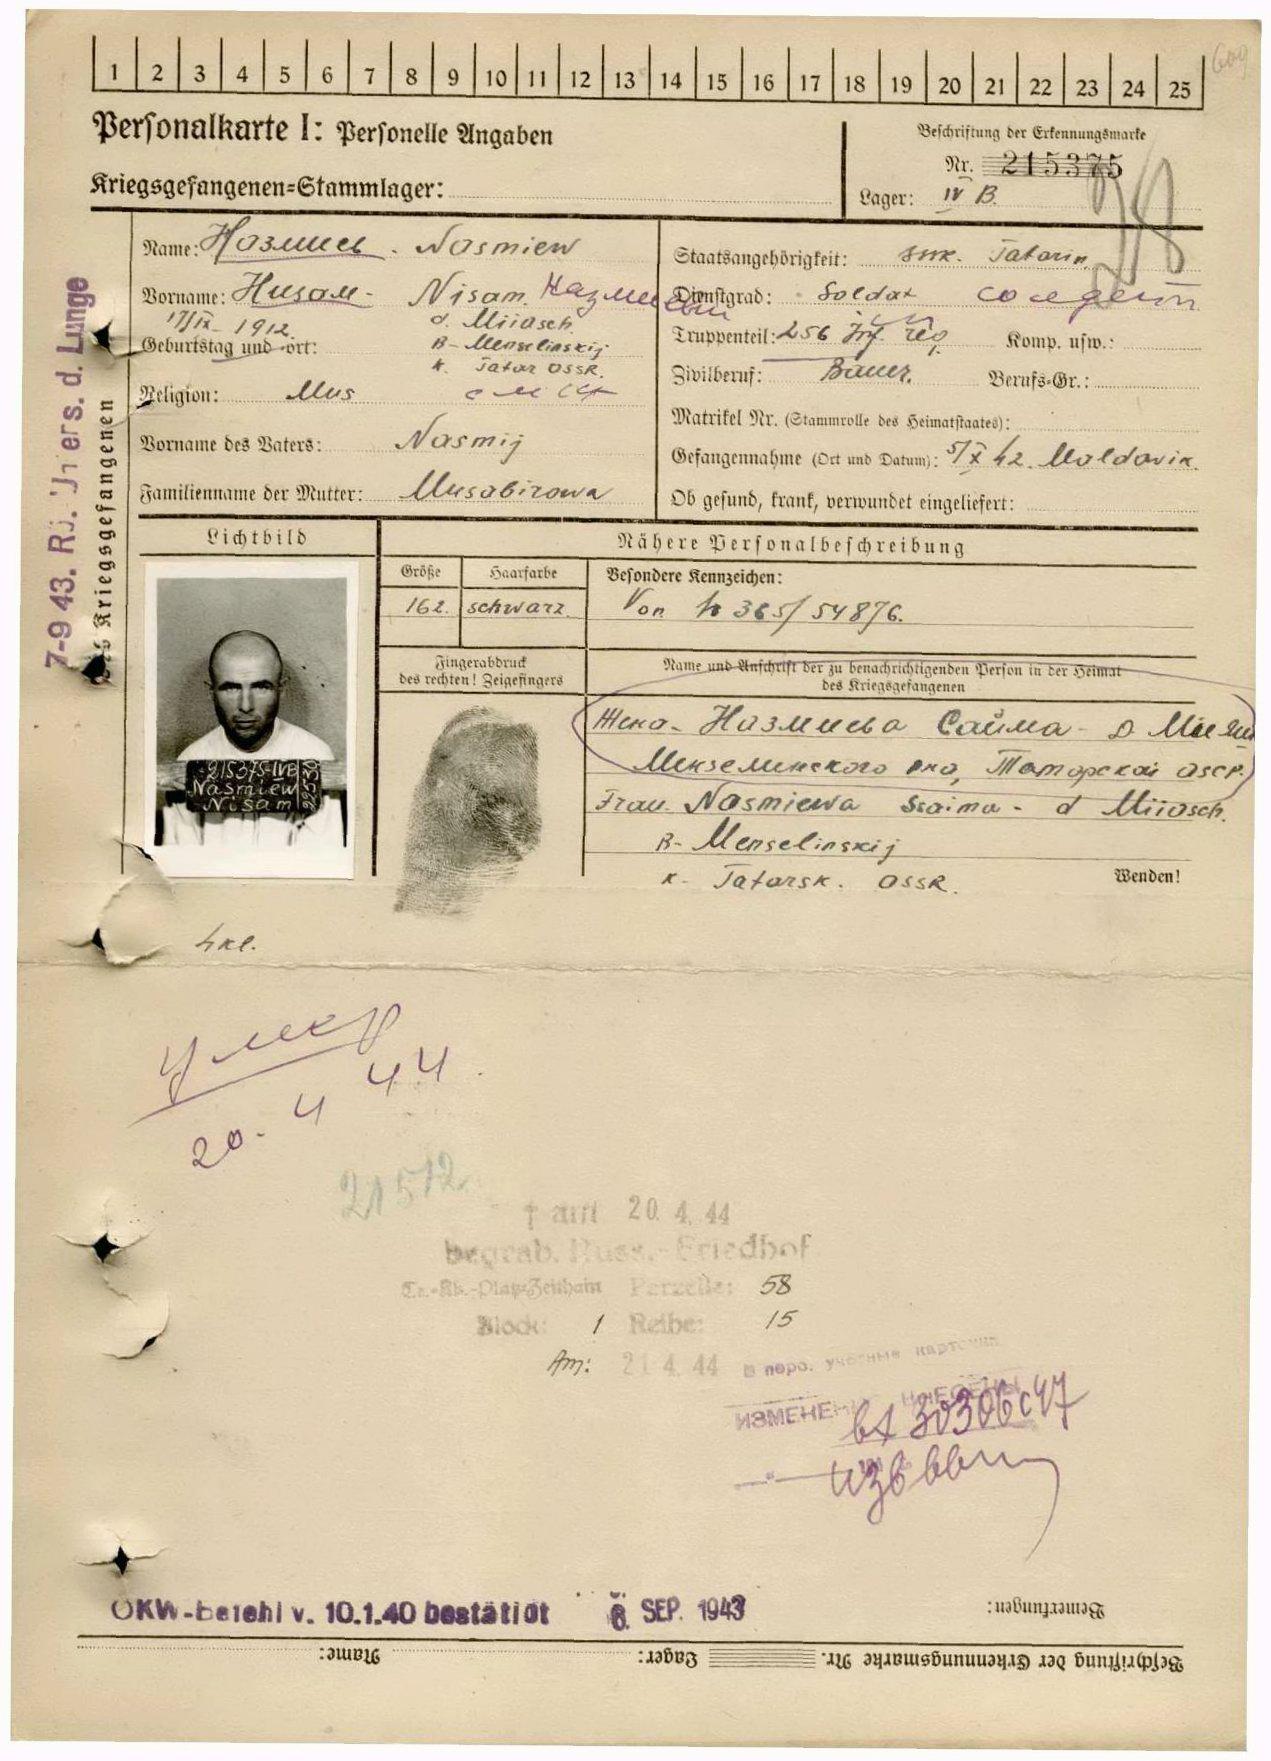 609
1 2 3 4 5 6 7 8 9 10 11 12 13 14 15 16 17 18 19 20 21 22 23 24 25
Personalkarte I: Personelle Angaben
Kriegsgefangenen-Stammlager:
Beschriftung der Erkennungsmarke
Nr. 215375
Lager: IV B.
Name: Назмиев - Nasmiew
Vorname: Низам - Nisam. Назмиев
17/IX - 1912. d. Miiasch.
Geburtstag und -ort: R- Menselinskij
K. Tatar OSSR.
Religion: Mus
Vorname des Vaters: Nasmij
Familienname der Mutter: Musabirowa
Staatsangehörigkeit: Tatarin
Dienstgrad: Soldat
Truppenteil: 256 Inf. Reg. Komp. usw.:
Zivilberuf: Bauer. Berufs-Gr.:
Matrikel Nr. (Stammrolle des Heimatstaates):
Gefangennahme (Ort und Datum): 5/X 42. Moldavik
Ob gesund, krank, verwundet eingeliefert:
7-9 43. Rö. d. Lunge
des Kriegsgefangenen
Lichtbild
Nähere Personalbeschreibung
Größe Haarfarbe Besondere Kennzeichen:
162. schwarz Von 365/54876.
Fingerabdruck
des rechten! Zeigefingers
Name und Anschrift der zu benachrichtigenden Person in der Heimat
des Kriegsgefangenen
215375 IVB
Nasmiew
Nisam
Жена - Назмиева Сайма - д
Мензелинского рно, Таторской АССР.
Frau. Nasmiewa Ssaima - d Miiasch.
R- Menselinskij
K- Tatarsk. OSSR.
Wenden!
4 кл.
умер
20. 4 44.
21512
† am 20. 4. 44
begrab. Russ.-Friedhof
Tr.-Üb.-Platz Zeithain Parzelle: 58
Block: 1 Reihe: 15
Am: 21 4. 44
В перс. учетные карточки
ИЗМЕНЕНИЯ ВНЕСЕНЫ
вх 30306с 47
OKW-Befehl v. 10.1.40 bestätigt 8. SEP. 1943
Bemerkungen:
Beschriftung der Erkennungsmarke Nr. Lager: Name: